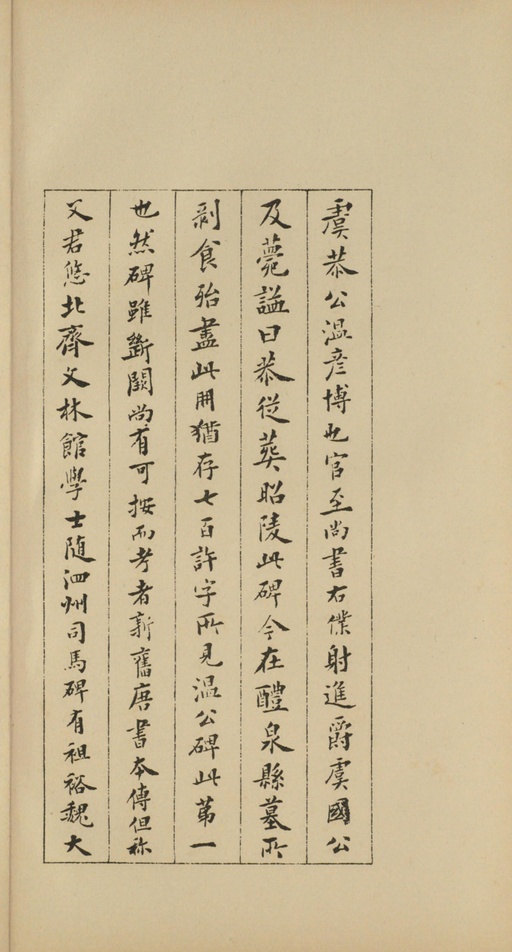 虞恭公温彦博也官至尚書右僕射進爵虞國公
及薨謚曰恭從葬昭陵此碑今在醴泉縣墓所
剥食殆盡此冊猶存七百許字所見温公碑此苐一
也然碑雖斷闕尚有可按而考者新舊唐書本傳但称
父君悠北齊文林館學士随泗州司馬碑有祖裕魏大